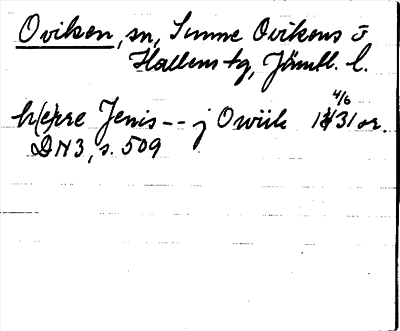 Oviken, sn, Sunne Ovikens o
Hallens tg, Jämtl. l.
h(e)rre Jenis -- j Owiik 4/6 1431 or.
DN 3, s. 509